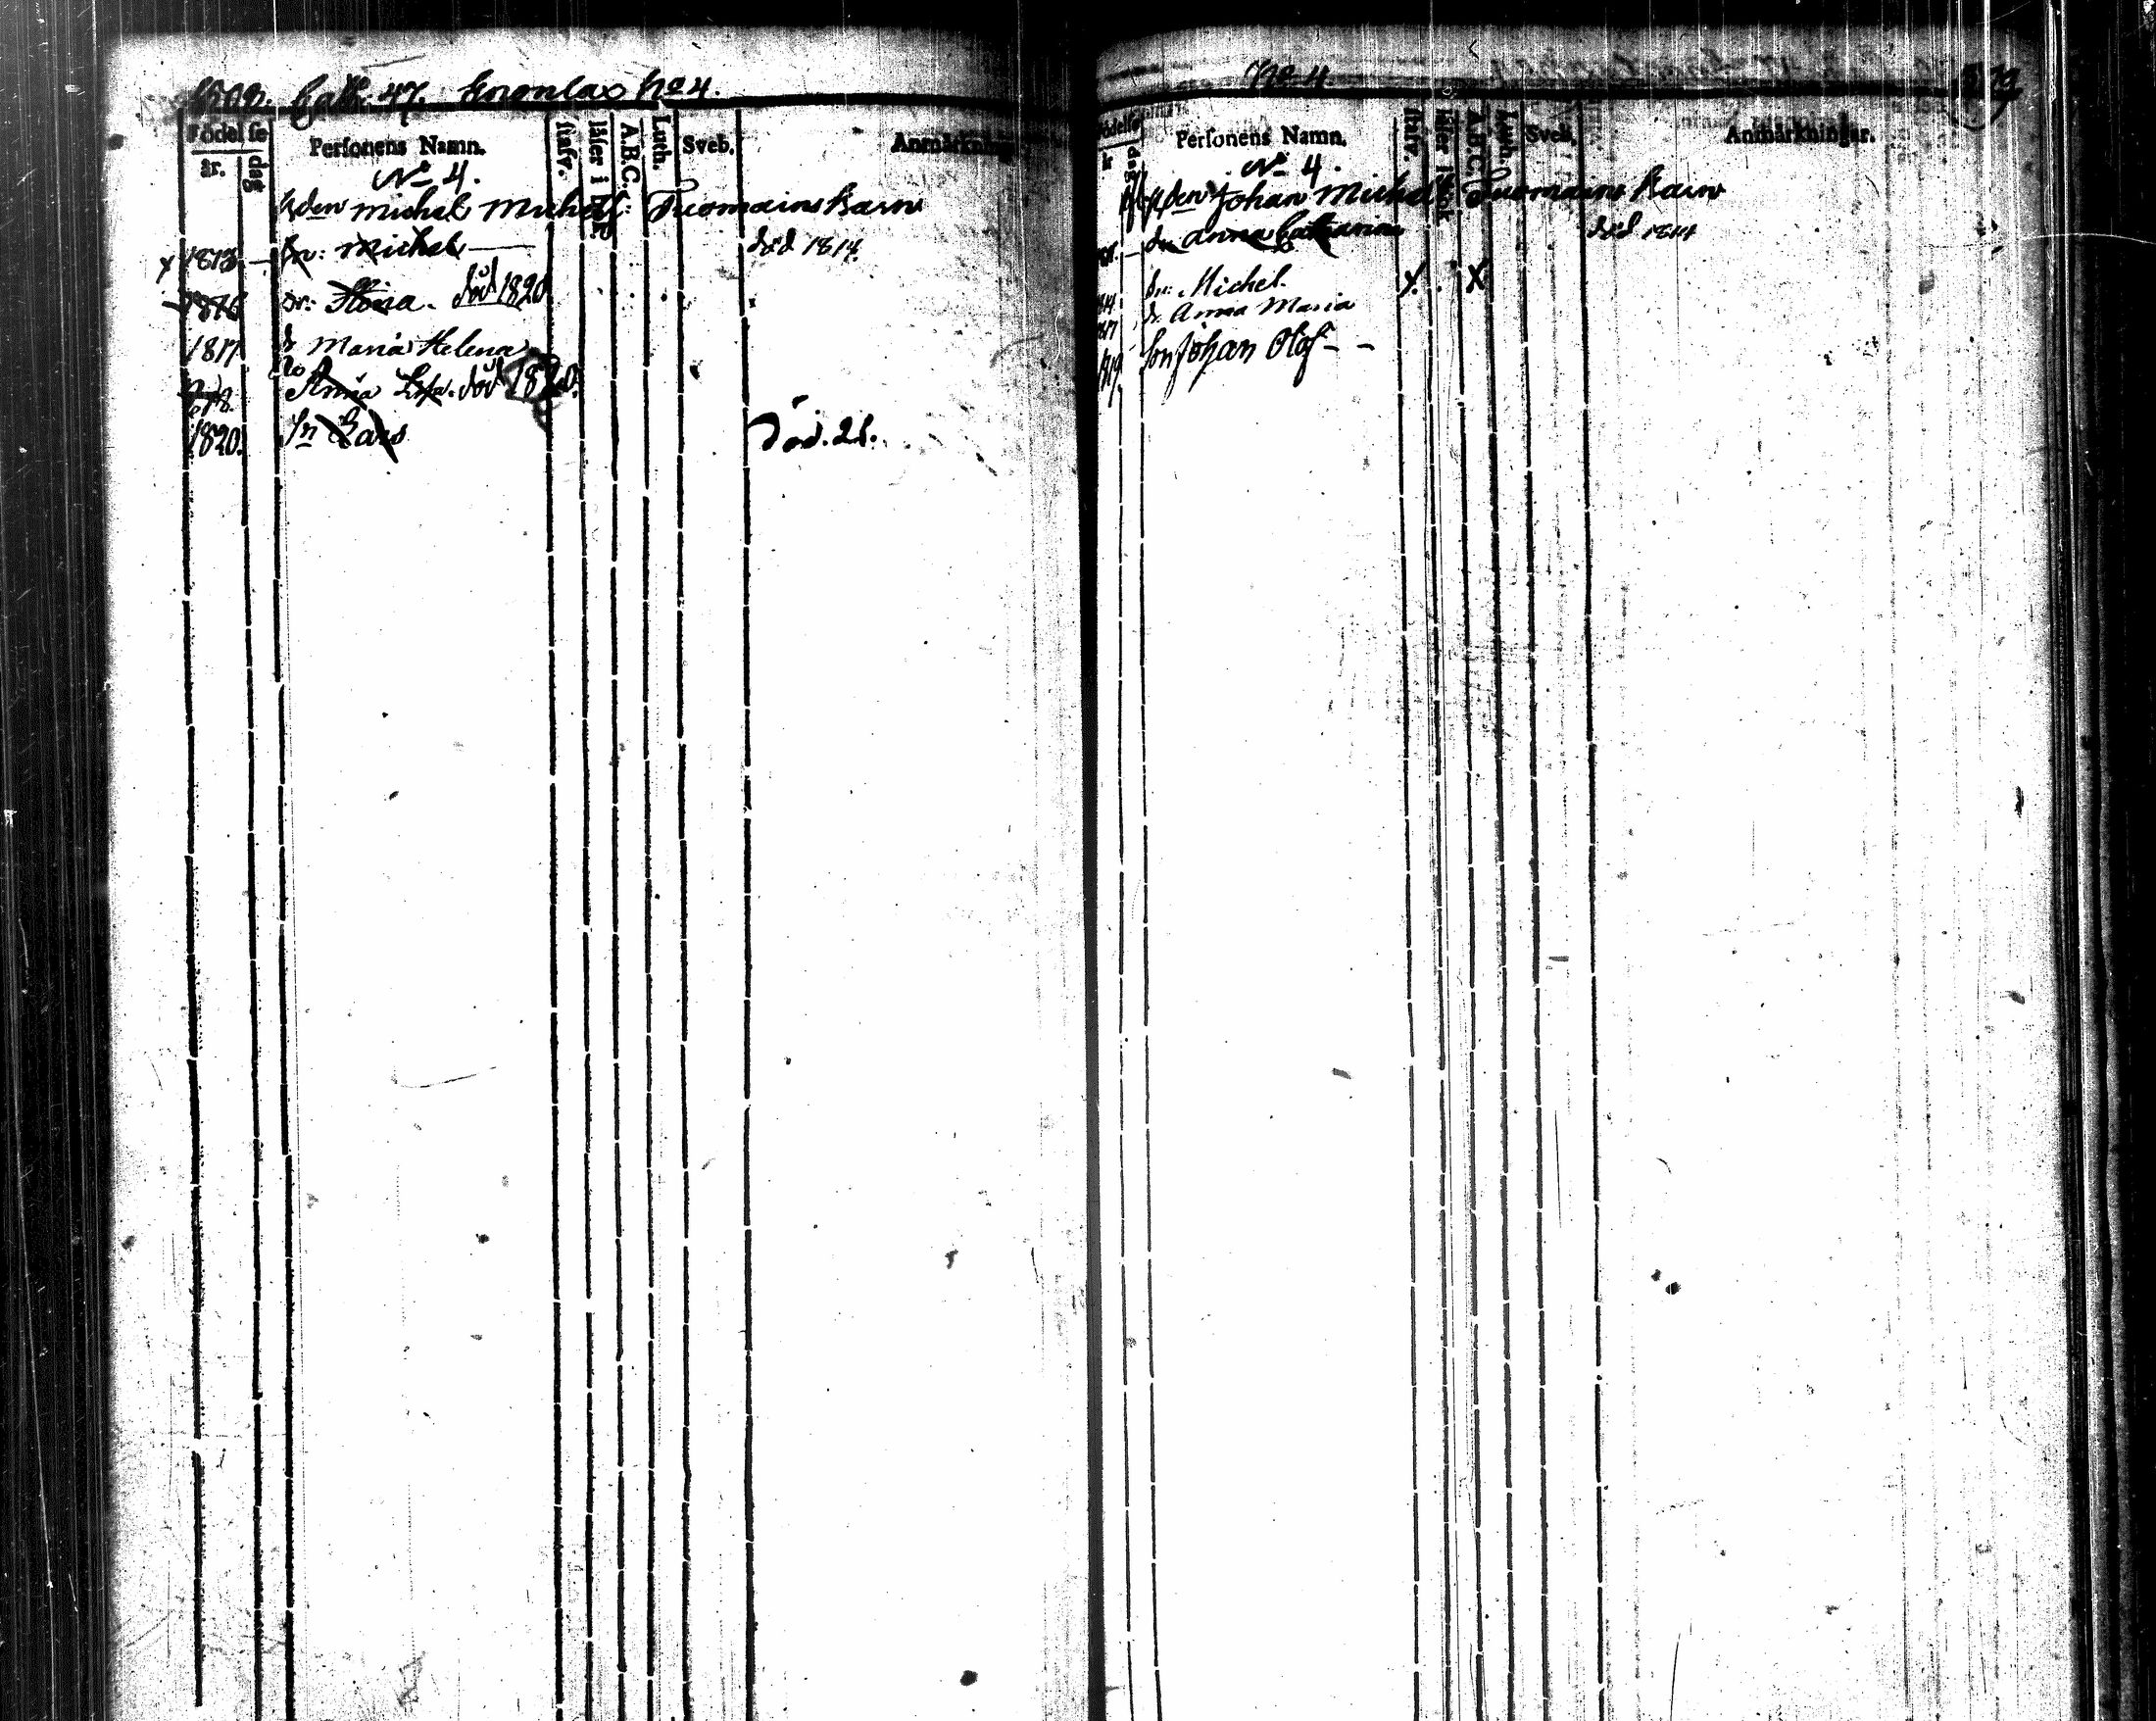 Cath. 47. Enonlax No 4.
Födelse
år. dag
Personens Namn.
stafv.
läser i bok.
A.B.C.
Luth.
Sveb.
Anmärkning
No 4.
Bden Michel Michelss: Tuomains Barn
1813 — Sn: Michel — död 1814.
1816 Dr: Stina. död 1820
1817 dr Maria Helena
Anna Lisa. död 1820.
1820. Sn Lars Död. 21.
No 4.
Födelse
dag
Personens Namn.
stafv.
läser i bok.
A.B.C.
Luth.
Sveb.
Anmärkningar.
No 4.
Bden Johan Michels Tuomains Barn
dr Anna Catharina död 1814
Sn: Michel. X X
dr Anna Maria
1819 Son Johan Olof - -